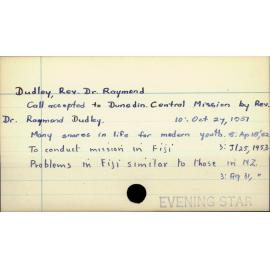 Dudley, Rev. Dr. Raymond
Call accepted to Dunedin Central Mission by Rev.
Dr. Raymond Dudley. 10: Oct 27, 1951
Many snares in life for modern youth. 8: Ap 18/52
To conduct mission in Fiji 3: Jl 25, 1953
Problems in Fiji similar to those in N.Z.
3: Ag 31, "
EVENING STAR